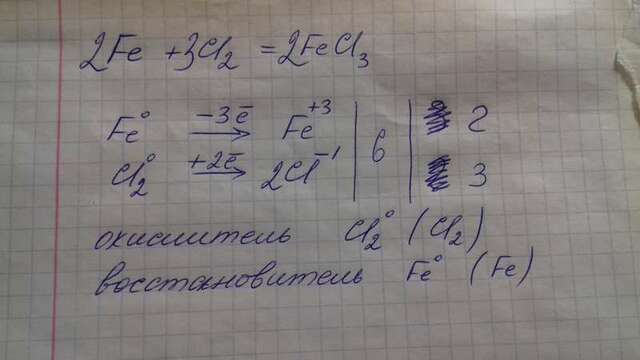 2Fe + 3Cl₂ = 2FeCl₃
Fe⁰ −3e̅ → Fe⁺³ | 6 | 2
Cl₂⁰ +2e̅ → 2Cl⁻¹ | 3
окислитель Cl₂⁰ (Cl₂)
восстановитель Fe⁰ (Fe)